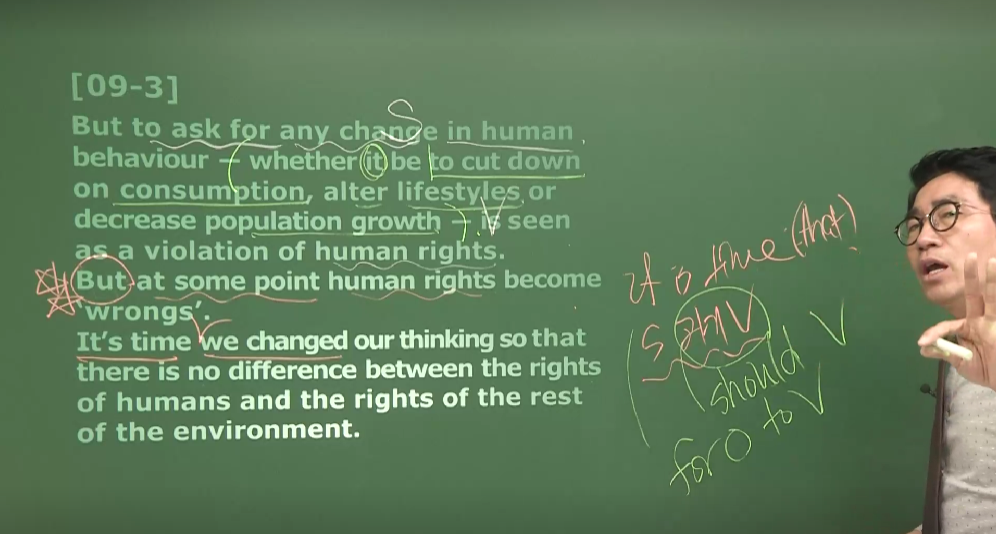 [09-3]
S
But to ask for any change in human
behaviour – whether it be to cut down
on consumption, alter lifestyles or
decrease population growth – is seen
V
as a violation of human rights.
But at some point human rights become
'wrongs'.
It's time we changed our thinking so that
there is no difference between the rights
of humans and the rights of the rest
of the environment.
it is time (that)
S 과거V
should V
for O to V